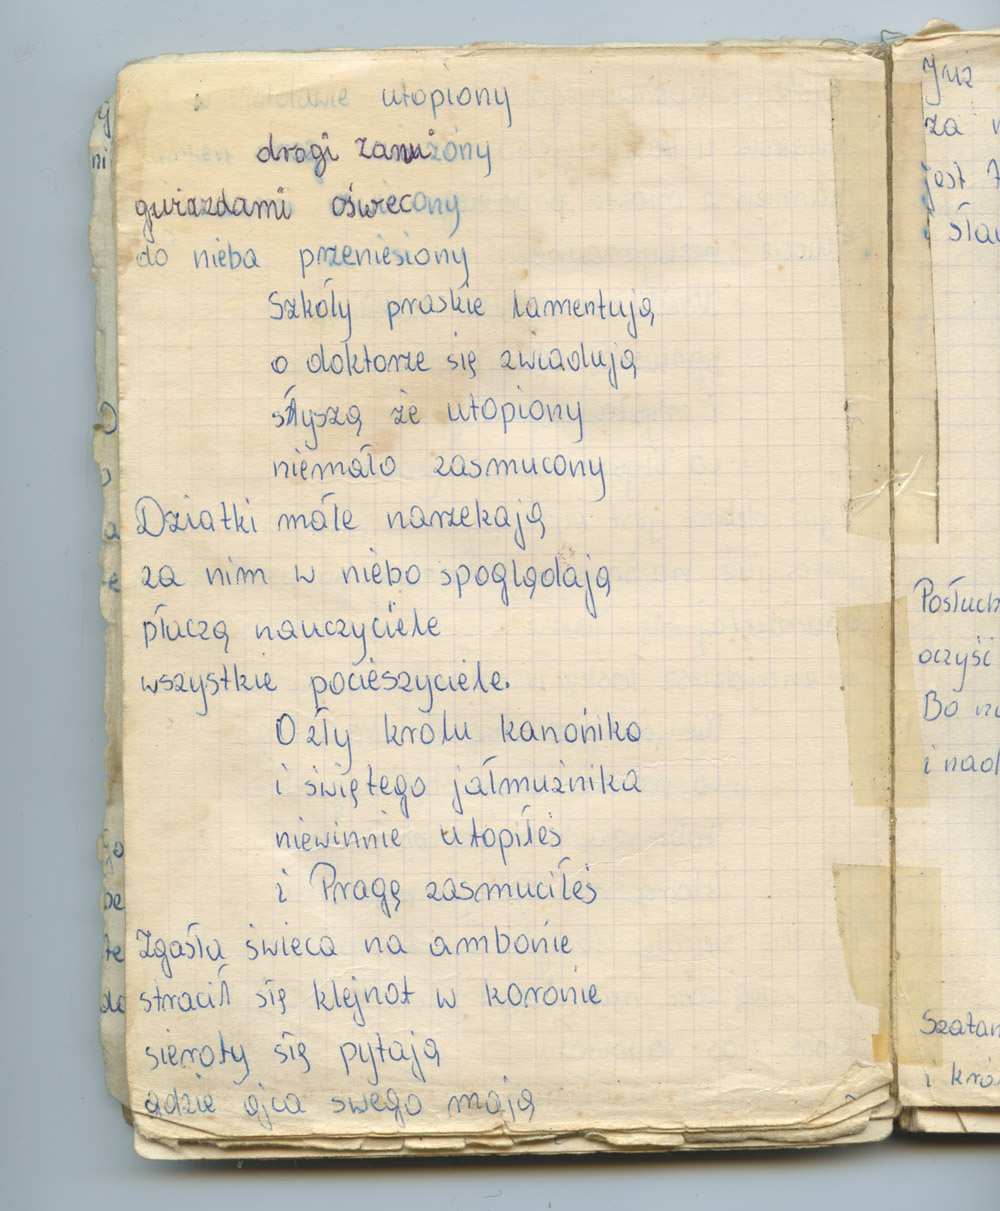 w utopiony
drogi zanużóny
gwiazdami oświecony
do nieba przeniesiony
Szkóły praskie lamentują
o doktorze się zwiadują
słyszą że utopiony
niemało zasmucony
Dziatki małe narzekają
za nim w niebo spoglądają
płaczą nauczyciele
wszystkie pocieszyciele.
O zły królu kanonika
i świętego jałmużnika
niewinnie utopiłeś
i Pragę zasmuciłeś
Zgasła świeca na ambonie
stracił się klejnot w koronie
sieroty się pytają
gdzie ojca swego mają
Już
za
jest
i
Posłuch
oczyść
Bo
i
Szatan
i